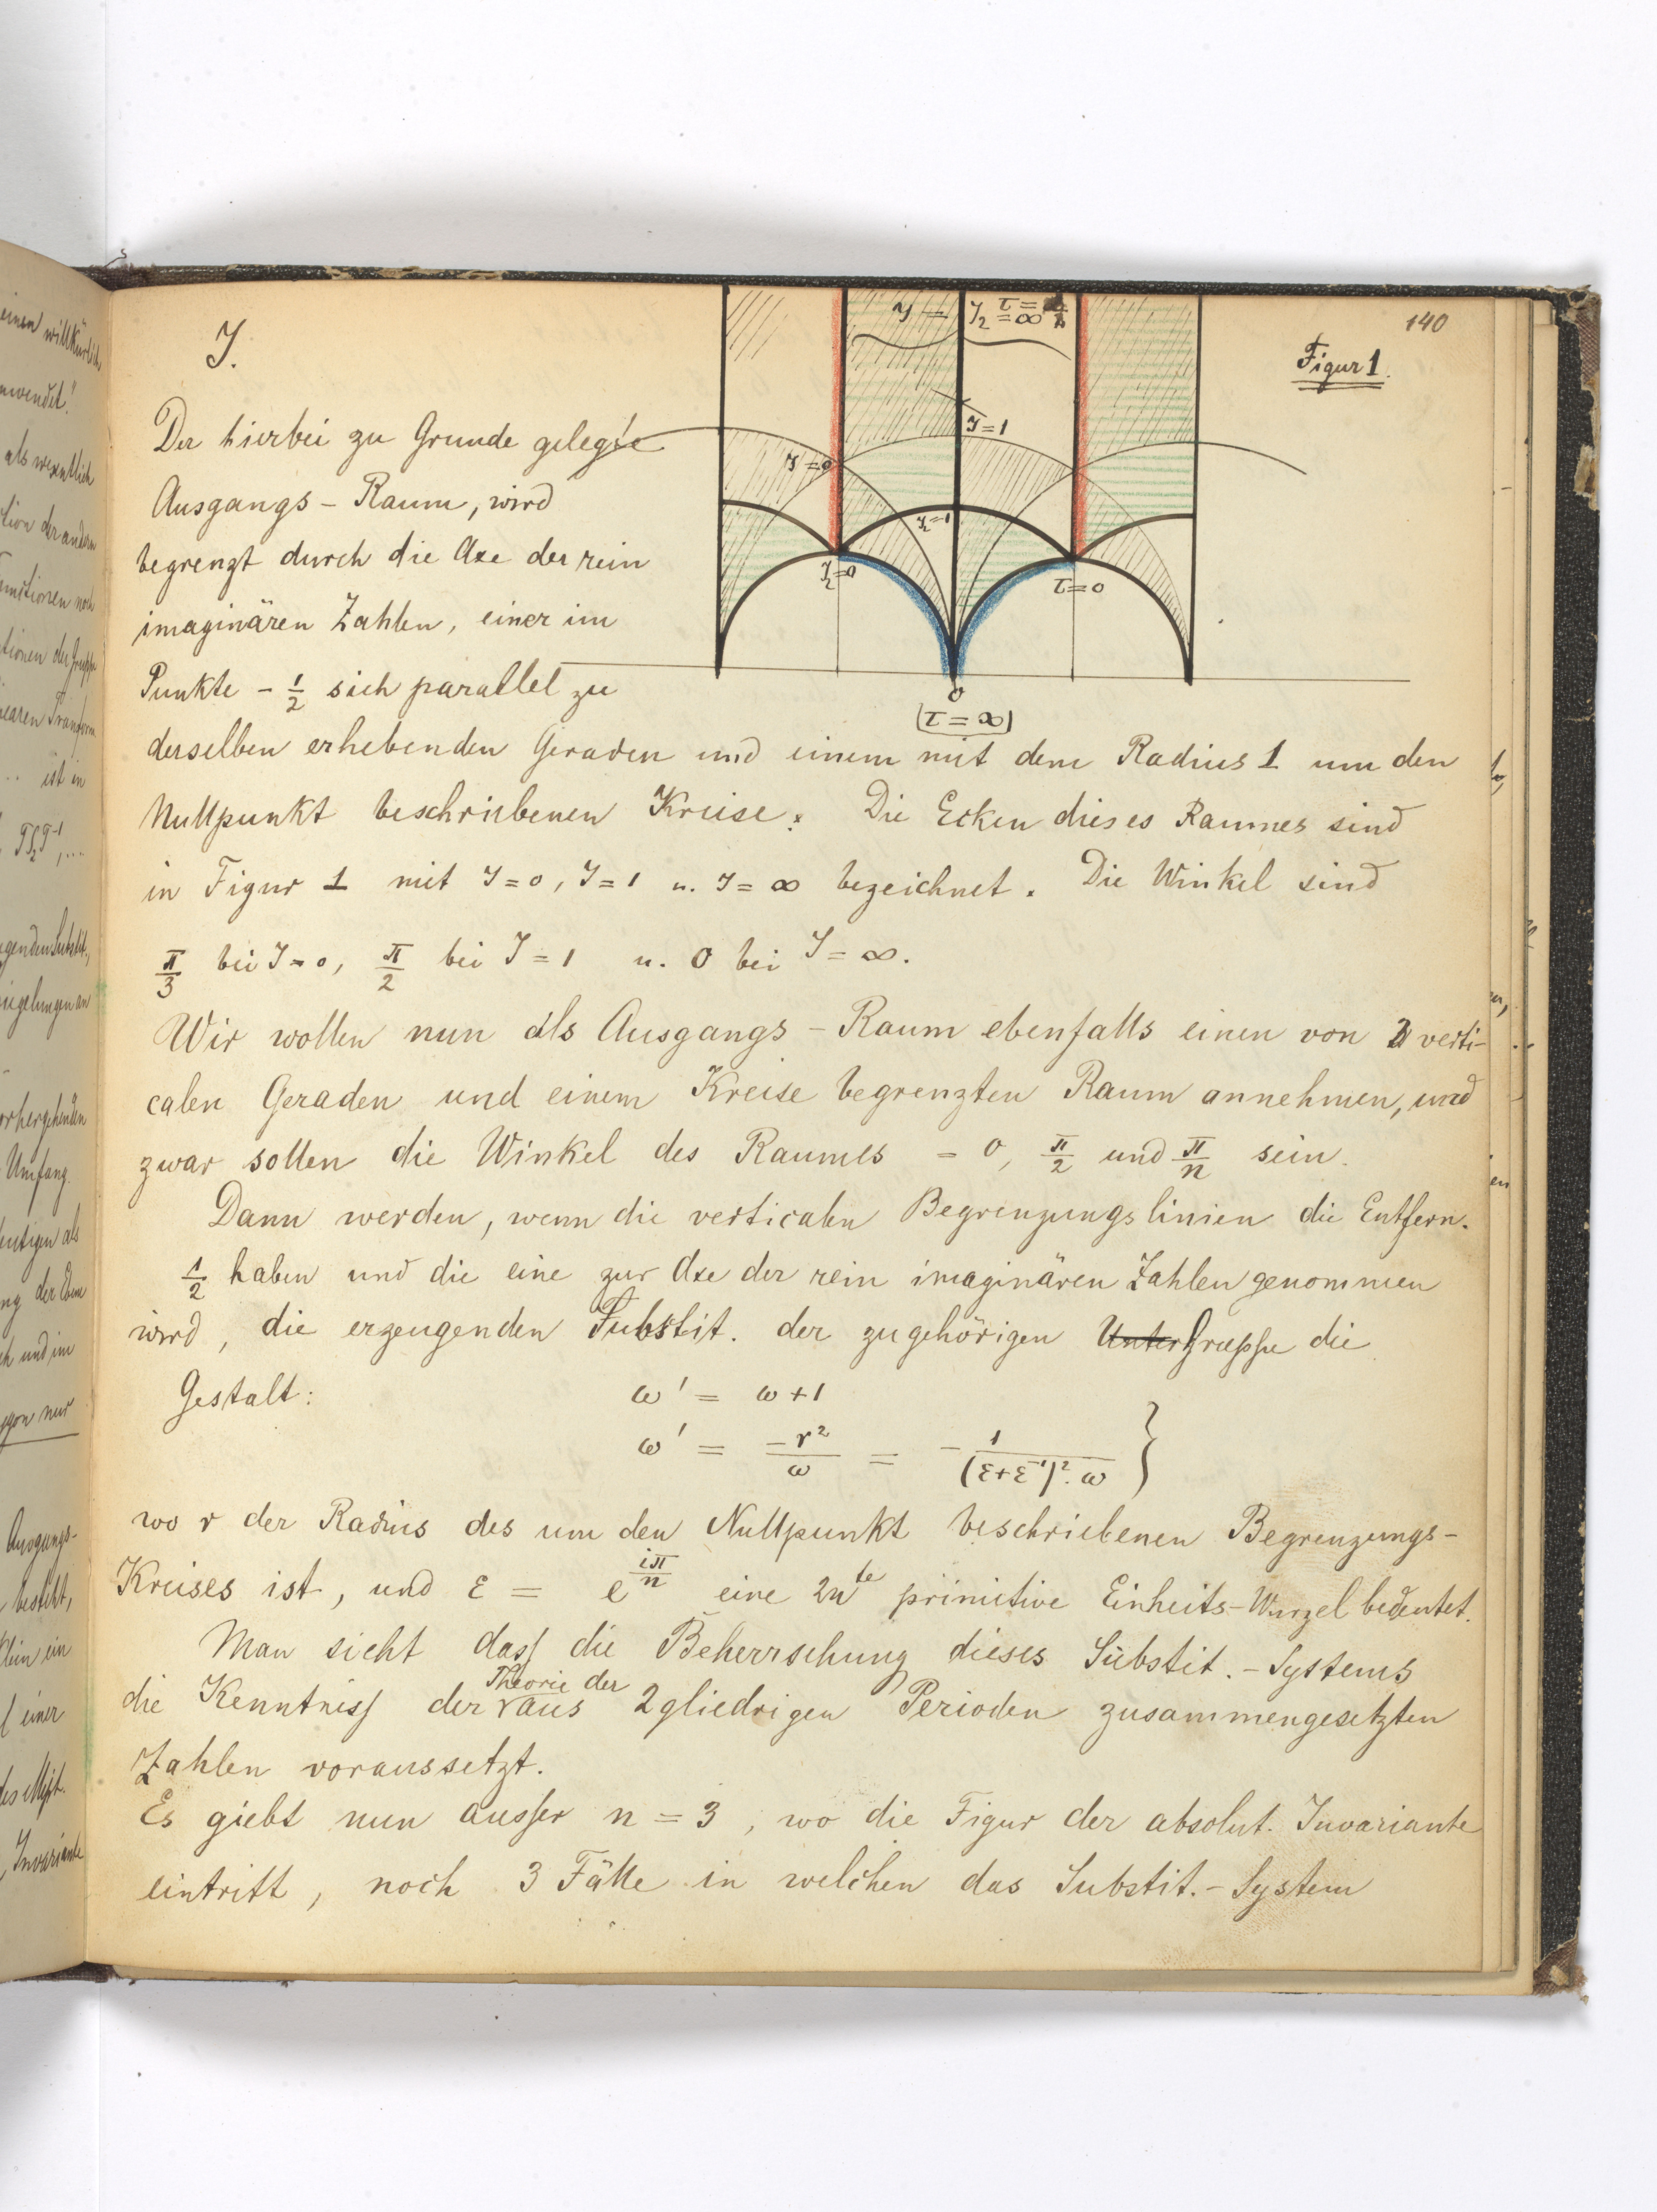 140
J.
Figur 1.
J = J₂ = ∞ τ =
J=1
J=0
J₂=1
J₂=0
τ=0
0
(τ = ∞)
Der hierbei zu Grunde gelegte
Ausgangs - Raum, wird
begrenzt durch die Axe der rein
imaginären Zahlen, einer im
Punkte - 1/2 sich parallel zu
derselben erhebenden Geraden und einem mit dem Radius 1 um den
Nullpunkt beschriebenen Kreise. Die Ecken dieses Raumes sind
in Figur 1 mit J=0, J=1 u. J=∞ bezeichnet. Die Winkel sind
π/3 bei J=0, π/2 bei J=1 u. 0 bei J=∞.
Wir wollen nun als Ausgangs - Raum ebenfalls einen von 2 verti-
calen Geraden und einem Kreise begrenzten Raum annehmen, und
zwar sollen die Winkel des Raumes = 0, π/2 und π/n sein.
Dann werden, wenn die verticalen Begrenzungslinien die Entfern.
1/2 haben und die eine zur Axe der rein imaginären Zahlen genommen
wird, die erzeugenden Substit. der zugehörigen UnterGruppe die
Gestalt: ω' = ω+1
ω' = -r²/ω = - 1/((ε+ε⁻¹)².ω) }
wo r der Radius des um den Nullpunkt beschriebenen Begrenzungs-
Kreises ist, und ε = e^(iπ/n) eine 2n^te primitive Einheits-Wurzel bedeutet.
Man sieht dass die Beherrschung dieses Substit.-Systems
die Kenntniss der Theorie der aus 2gliedrigen Perioden zusammengesetzten
Zahlen voraussetzt.
Es giebt nun ausser n = 3, wo die Figur der absolut. Invariante
eintritt, noch 3 Fälle in welchen das Substit.-System